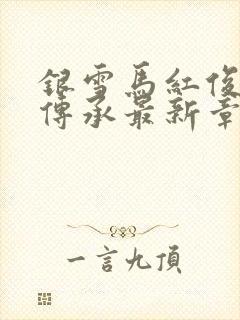 銀雪馬紅俊
傳承最新章
一言九頂